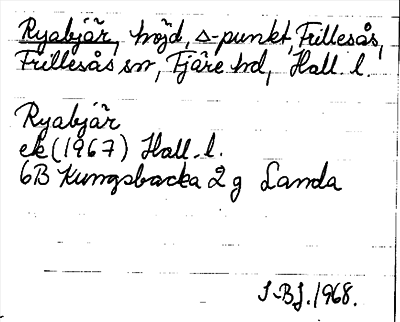 Ryabjär, höjd, s-punkt, Frillesås,
Frillesås sn, Fjäre hd, Hall. l.
Ryabjär
ek (1967) Hall. l.
6B Kungsbacka 2 g Landa
I-BJ. 1968.